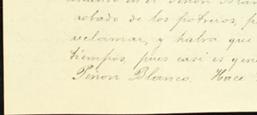 en el Peñon Blan
robado de los potreros, p
reclamar, y habra que
tiempos, pues casi es gene
Peñon Blanco. Hace